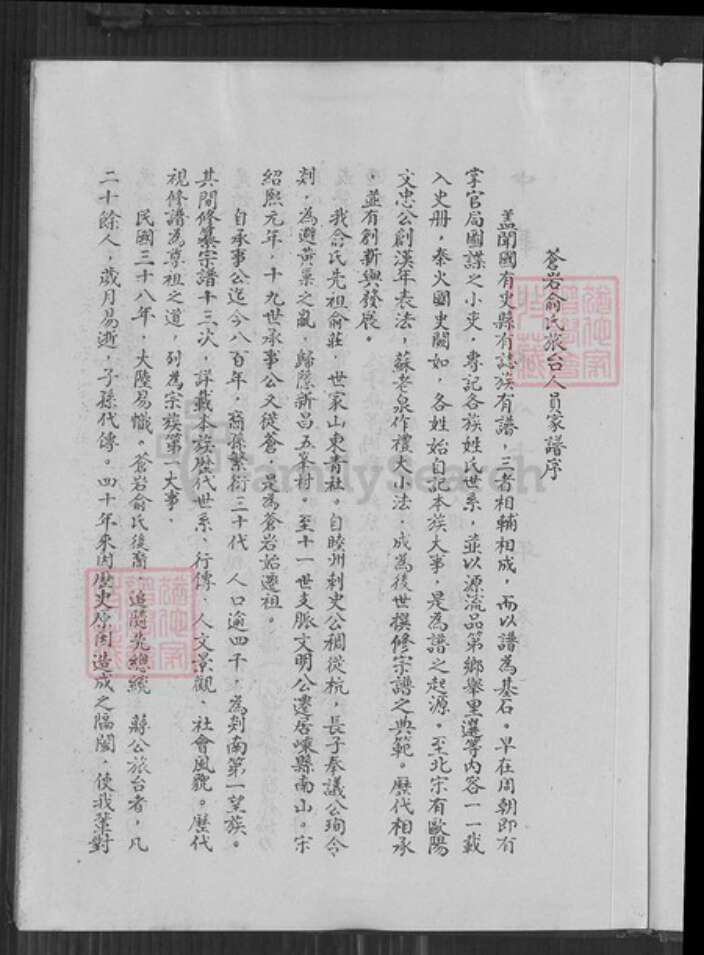 蒼岩俞氏旅台人員家譜序
蓋聞國有史縣有誌族有譜，三者相輔相成，而以譜為基石。早在周朝即有
掌官局國諜之小吏，專記各族姓氏世系，並以源流品第鄉舉里選等內容一一載
入史册，秦火國史闕如，各姓始自記本族大事，是為譜之起源。至北宋有歐陽
文忠公創漢年表法，蘇老泉作禮大小法，成為後世撰修宗譜之典範。歷代相承
，並有創新與發展。
我俞氏先祖俞莊，世家山東青社。自睦州刺史公稠從杭，長子奉議公珣令
剡，為避黃巢之亂，歸隱新昌五峯村。至十一世支脈文明公遷居嵊縣南山。宋
紹熙元年，十九世承事公又徙蒼，是為蒼岩始遷祖。
自承事公迄今八百年，裔孫繁衍三十代，人口逾四千，為剡南第一望族。
其間修纂宗譜十三次，詳載本族歷代世系、行傳、人文景觀、社會風貌。歷代
視修譜為尊祖之道，列為宗族第一大事，
民國三十八年，大陸易幟。蒼岩俞氏後裔，追隨先總統 蔣公旅台者，凡
二十餘人，歲月易逝，子孫代傳。四十年來因歷史原因造成之隔閡，使我葉對
FamilySearch